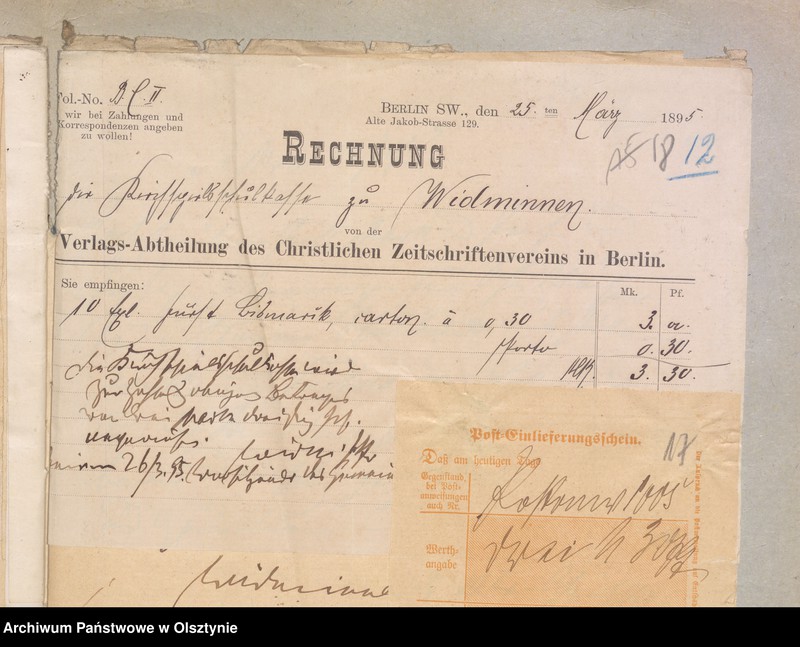 Fol.-No. B C. II.
wir bei Zahlungen und
Korrespondenzen angeben
zu wollen!
BERLIN SW., den 25. ten März 1895.
Alte Jakob-Strasse 129.
18 12
RECHNUNG
die Kirchspielsschulkasse zu Widminnen.
von der
Verlags-Abtheilung des Christlichen Zeitschriftenvereins in Berlin.
Sie empfingen:
Mk. Pf.
10 Expl. Fürst Bismarck, carton. à 0,30 3.
Porto 0. 30.
3. 30.
die Kirchspielsschulkasse wird
zur Zahlung obigen Betrages
von drei Mark dreißig Pf.
angewiesen.
26/3. 95.
Post-Einlieferungsschein.
17
Daß am heutigen Tage
Gegenstand,
bei Post-
anweisungen
auch Nr.
Werth-
angabe
drei M 30 Pf
Archiwum Państwowe w Olsztynie